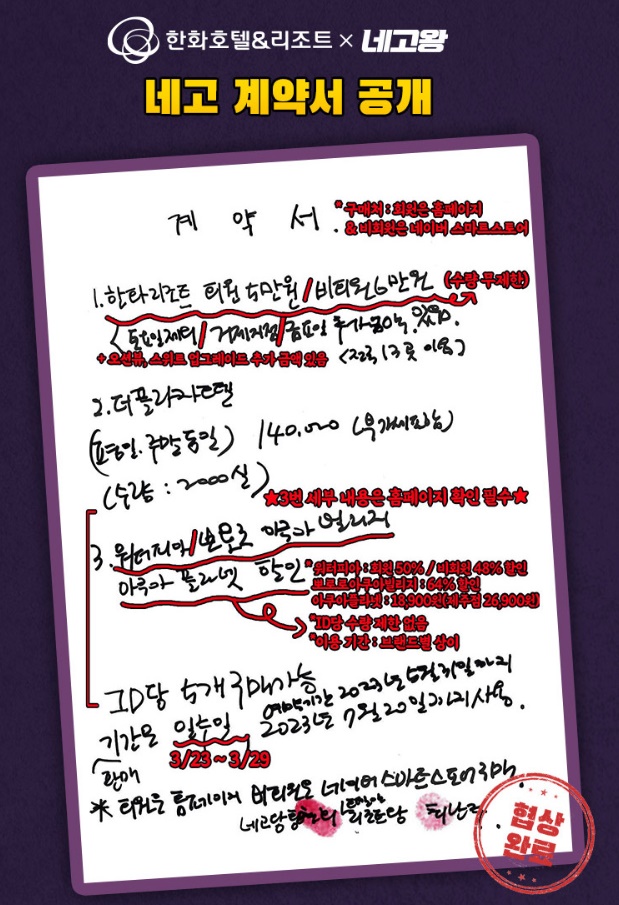 한화호텔&리조트 × 네고왕
네고 계약서 공개
계 약 서 .
* 구매처 : 회원은 홈페이지
& 비회원은 네이버 스마트스토어
1. 한화리조트 회원 5만원/비회원 6만원 (수량 무제한)
(토요일제외/거제지점/금요일 추가금액 있음.
+ 오션뷰, 스위트 업그레이드 추가 금액 있음 (전국 13곳 이용)
2. 더플라자호텔
(평일.주말 동일) 140,000 (부가세포함)
(수량 : 2000실)
★3번 세부 내용은 홈페이지 확인 필수★
3. 워터피아/뽀로로 아쿠아 빌리지
아쿠아 플라넷 할인
*워터피아 : 회원 50% / 비회원 48% 할인
뽀로로아쿠아빌리지 : 64% 할인
아쿠아플라넷 : 18,900원(제주점 26,900원)
*ID당 수량 제한 없음
*이용 기간 : 브랜드별 상이
ID당 5개 구매가능
예약기간 2023년 5월 31일까지
기간은 일주일 2023년 7월 20일까지 사용.
판매 3/23 ~ 3/29
* 회원은 홈페이지 비회원은 네이버 스마트스토어 구매
네고왕 리조트왕
협상
완료